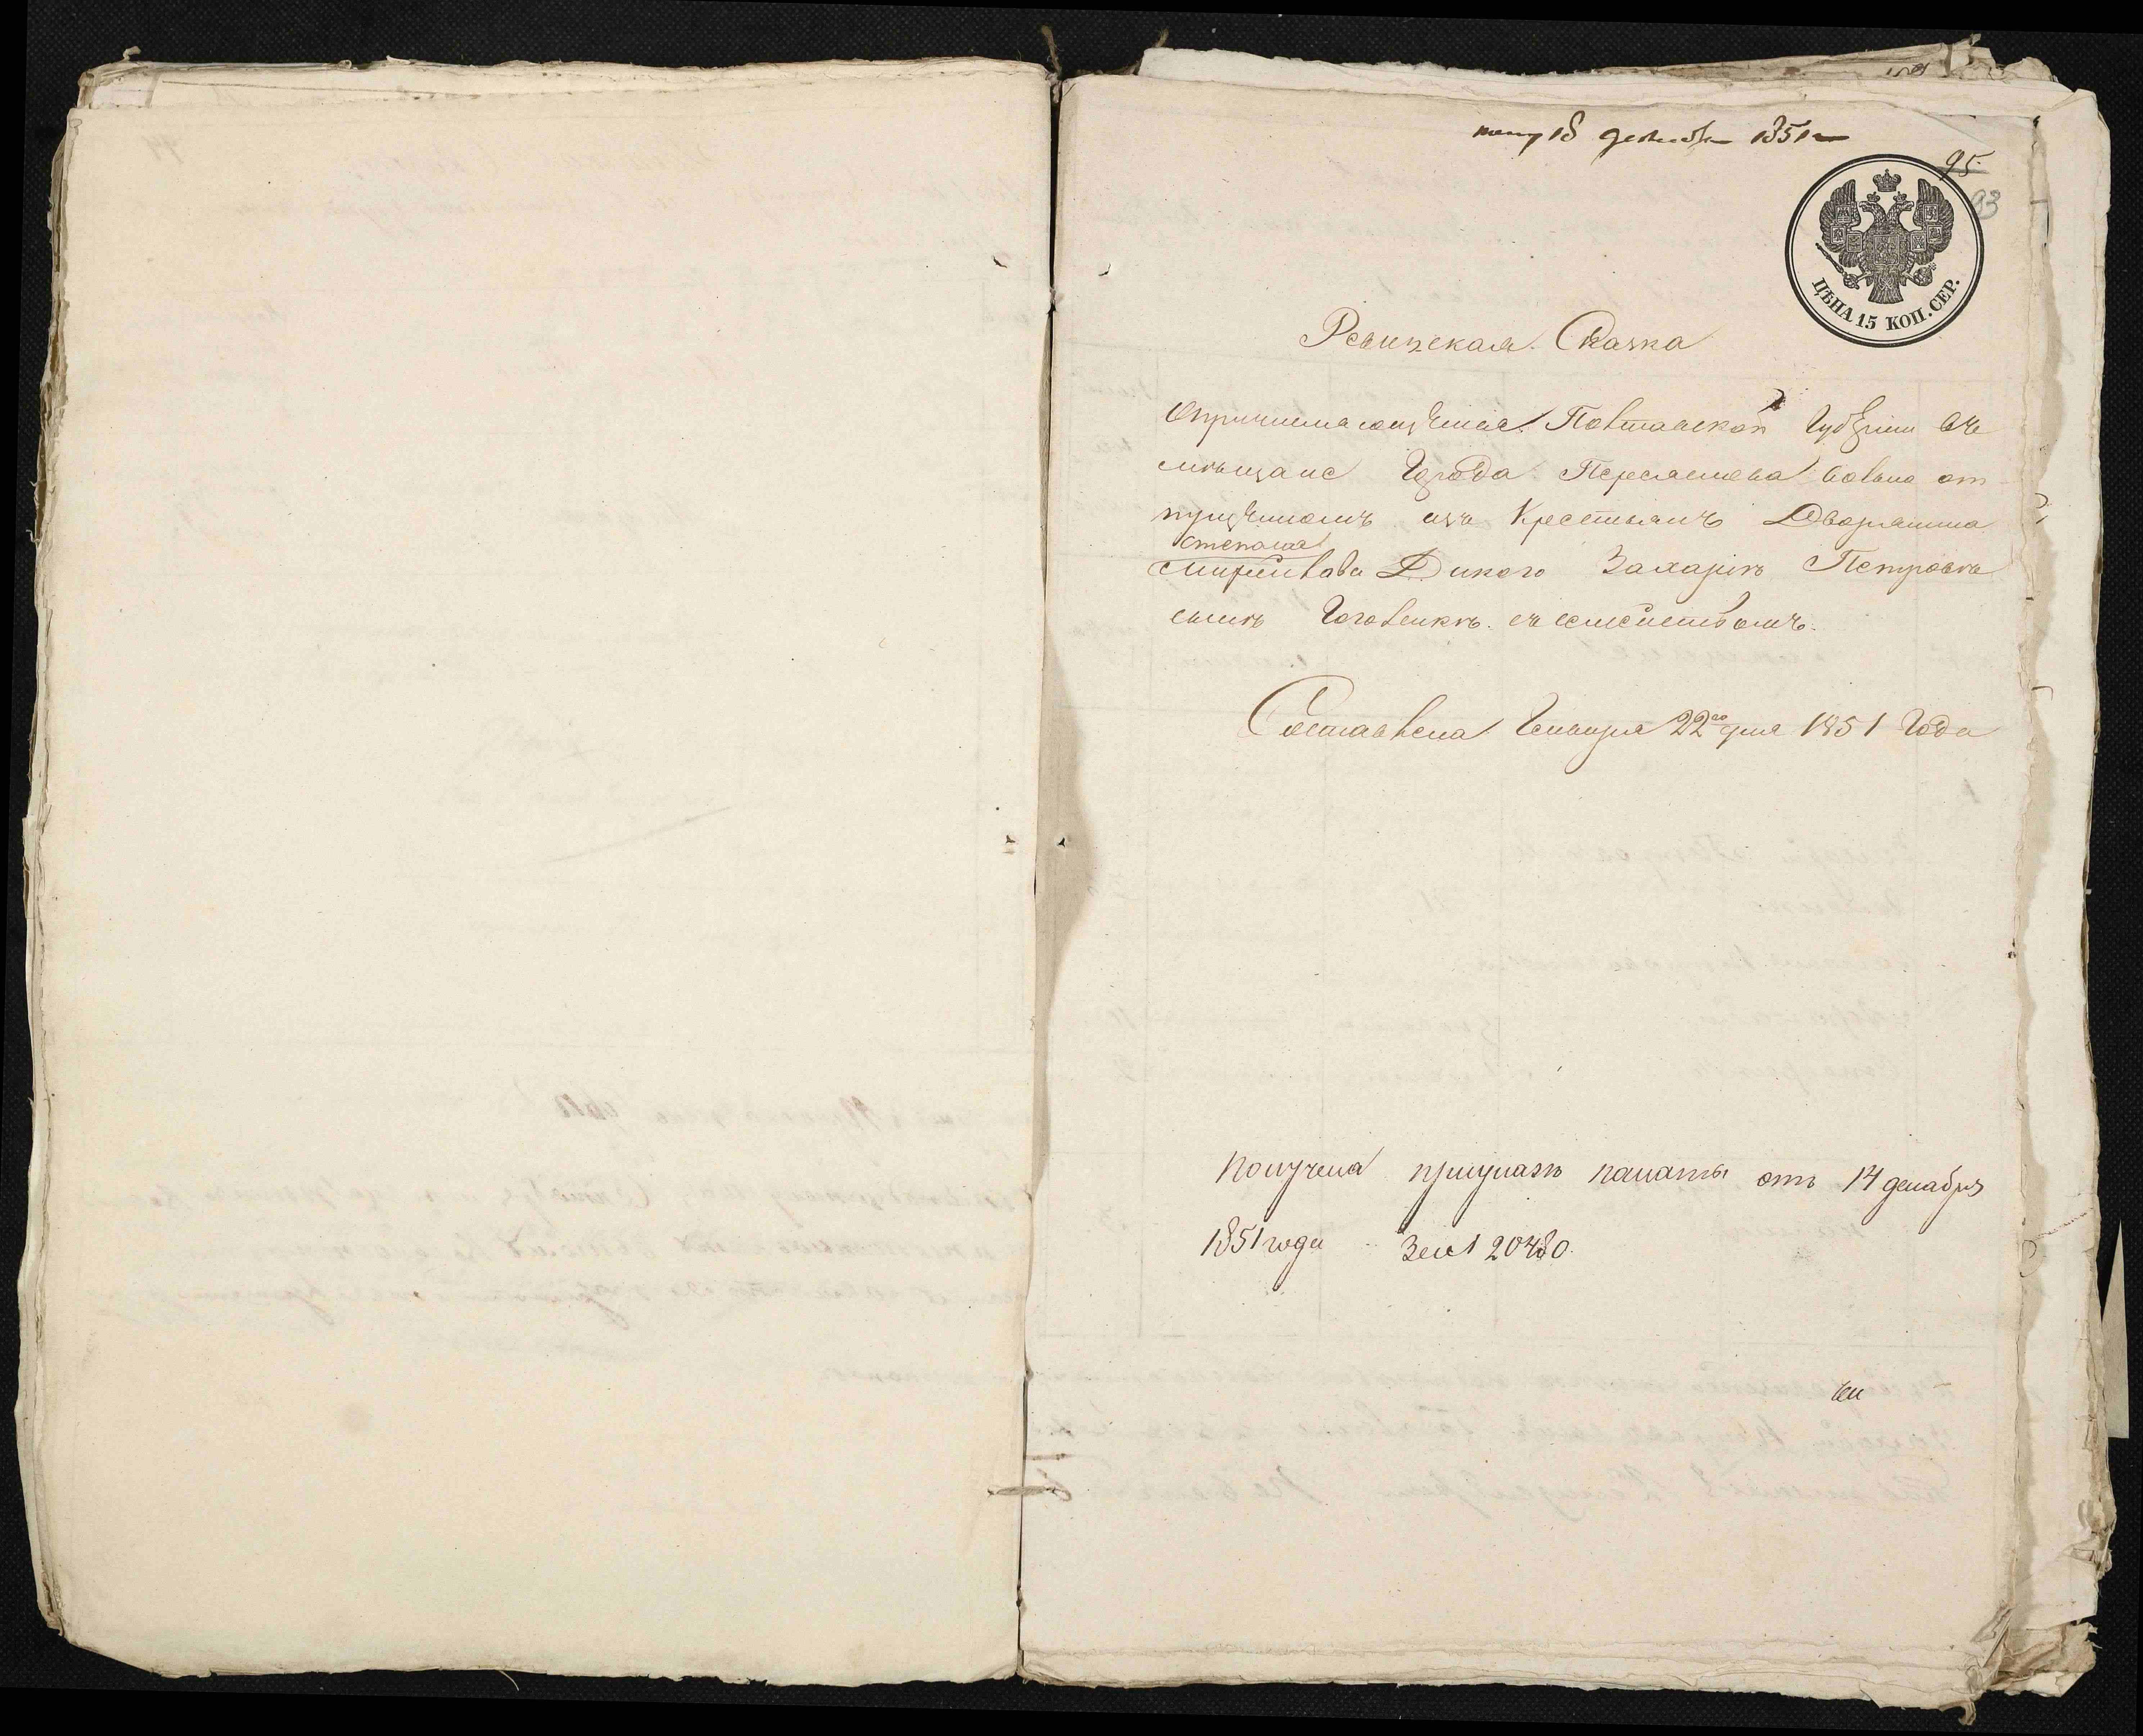 полу 18 декабря 1851
95.
93
ЦѢНА 15 КОП. СЕР.
Ревизская Сказка
О причислающемся Полтавской Губерніи въ
мѣщане Города Переяслава вольно от
пущенномъ изъ Крестьянъ Дворянина
Степана
Дикого Захаріѣ Петровѣ
сынѣ Гоголенкѣ съ семействомъ.
Составлена Генваря 22го дня 1851 Года
Получена приуказѣ палаты отъ 14 декабря
1851 года За № 20480.